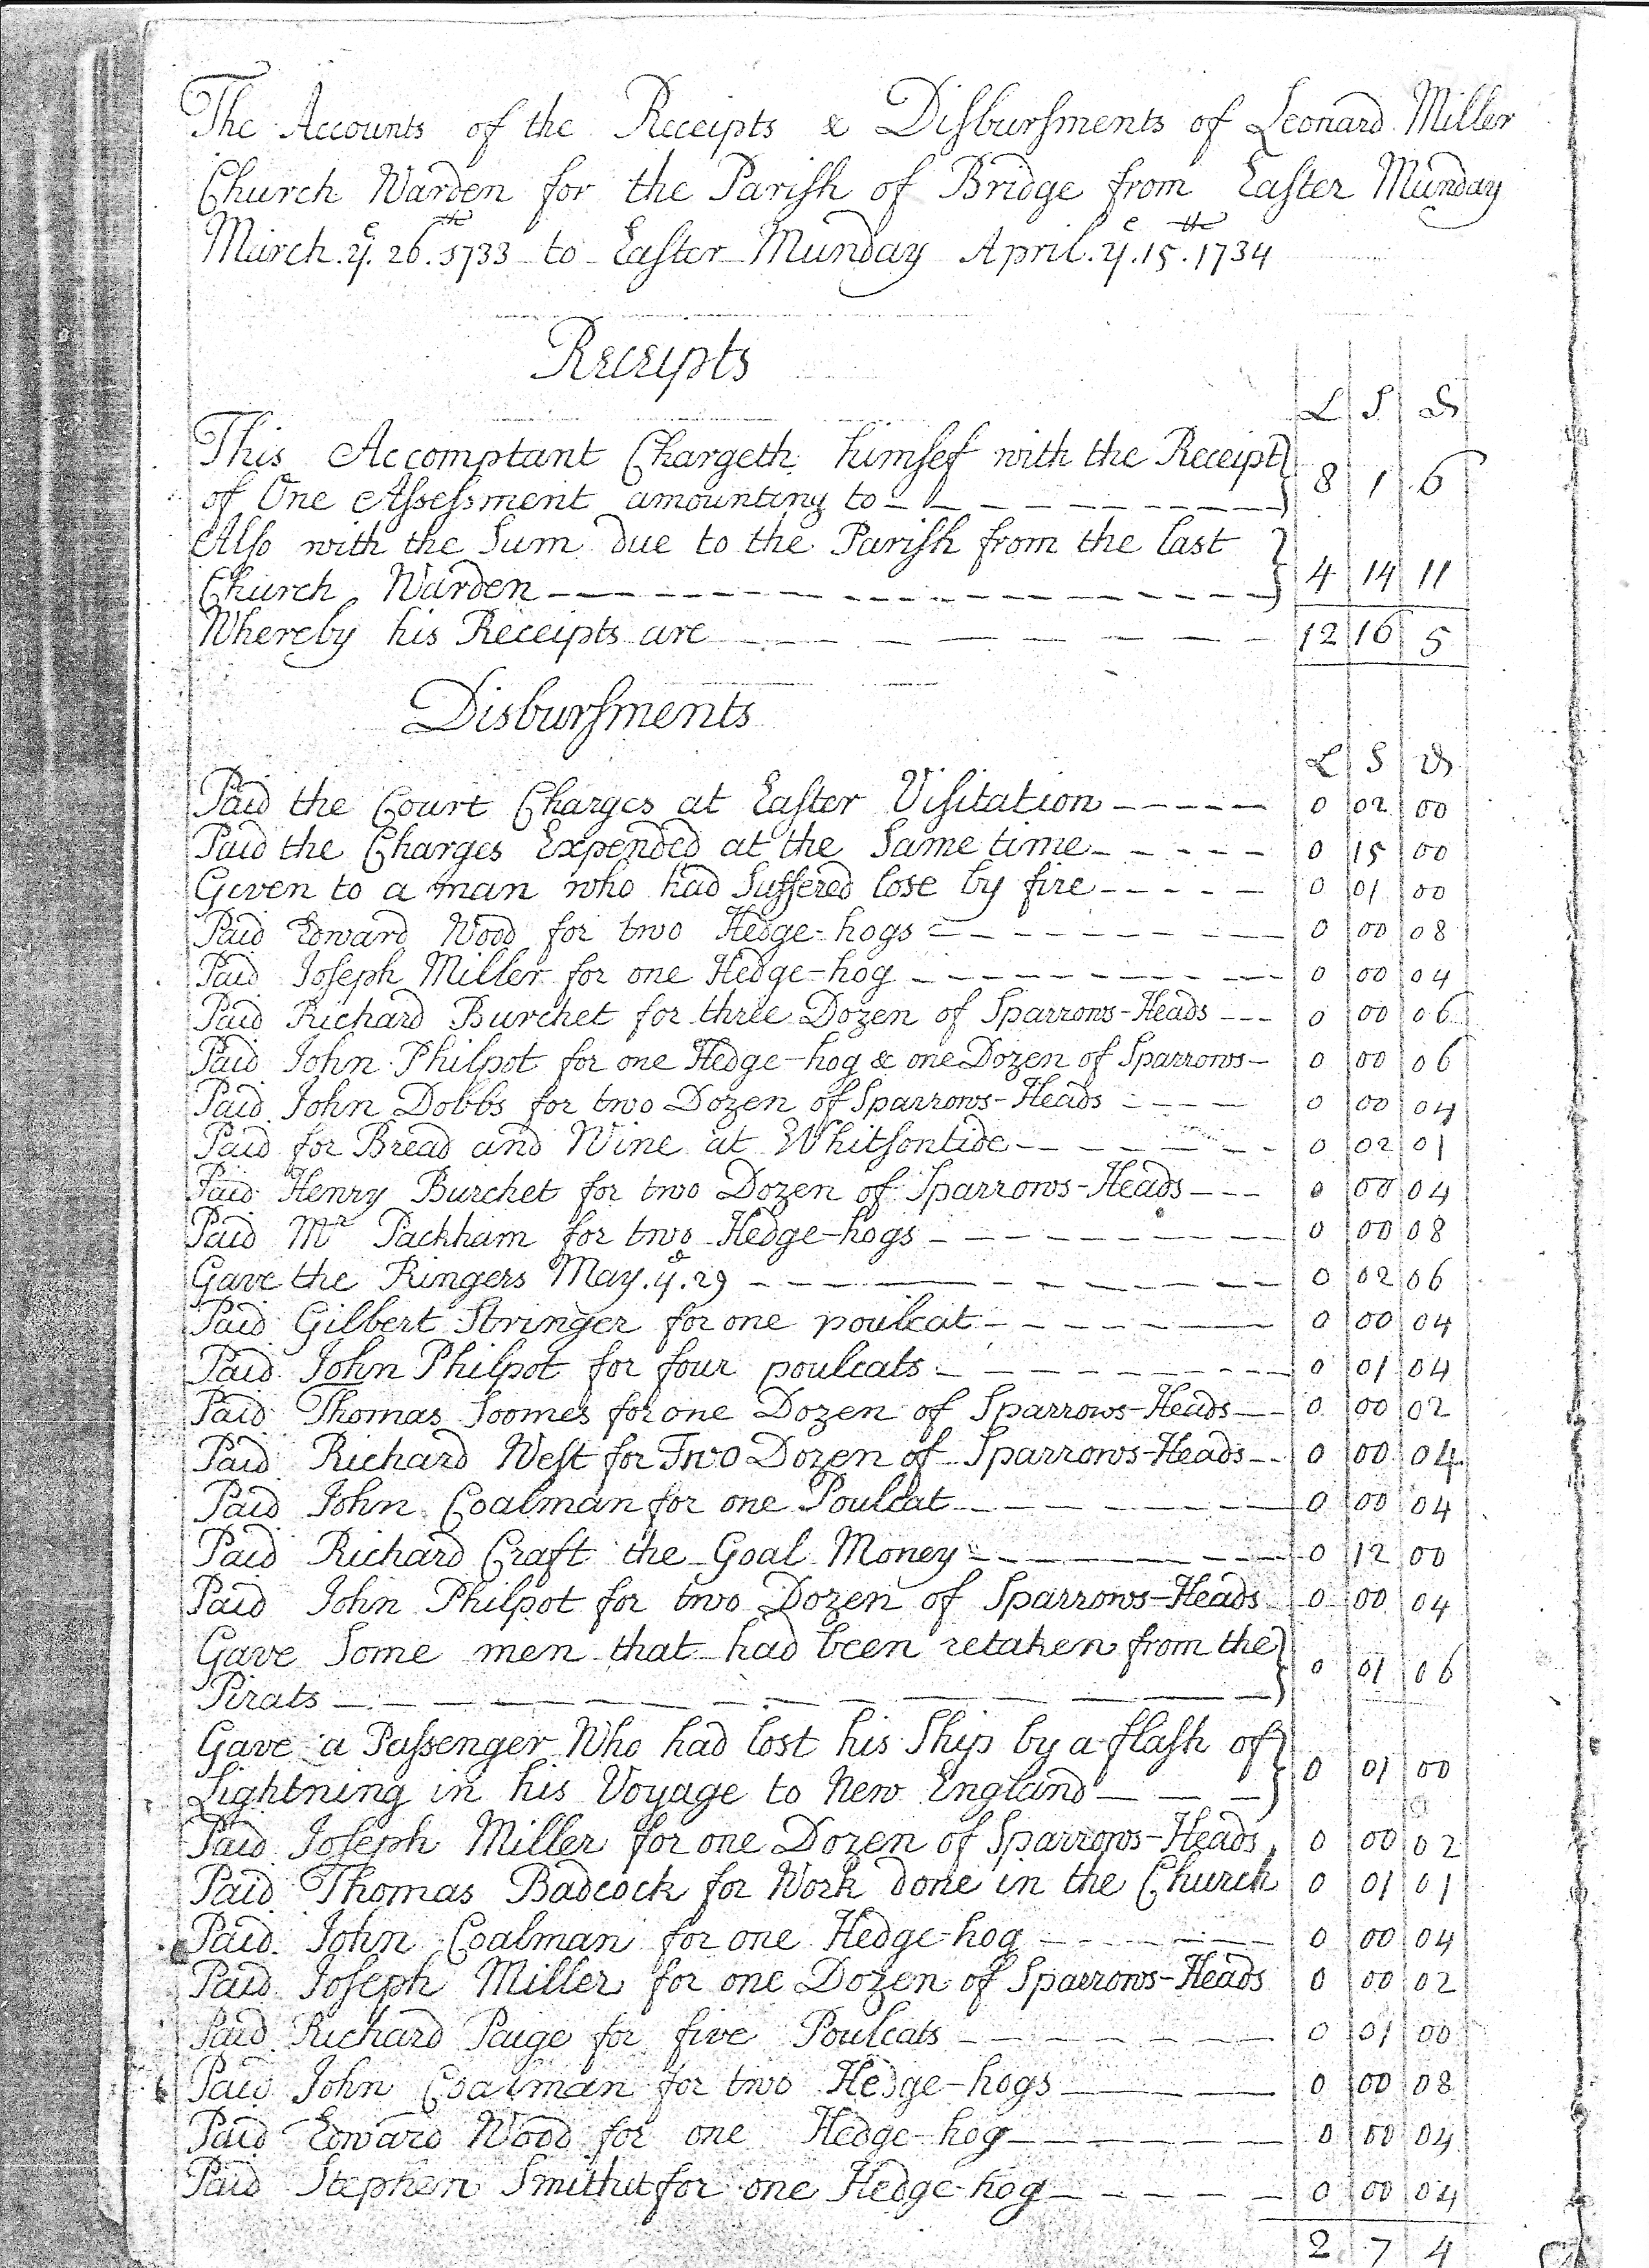 The Accounts of the Receipts & Disbursments of Leonard Miller
Church Warden for the Parish of Bridge from Easter Munday
March. ye. 26th. 1733 to Easter Munday April. ye. 15th. 1734
Receipts
L S D
This Accomptant Chargeth himsef with the Receipt
of One Assessment amounting to 8 1 6
Also with the Sum due to the Parish from the last
Church Warden 4 14 11
Whereby his Receipts are 12 16 5
Disbursments
L S D
Paid the Court Charges at Easter Visitation 0 02 00
Paid the Charges Expended at the Same time 0 15 00
Given to a man who had Suffered lose by fire 0 01 00
Paid Edward Wood for two Hedge-hogs 0 00 08
Paid Joseph Miller for one Hedge-hog 0 00 04
Paid Richard Burchet for three Dozen of Sparrows-Heads 0 00 06
Paid John Philpot for one Hedge-hog & one Dozen of Sparrows 0 00 06
Paid John Dobbs for two Dozen of Sparrows-Heads 0 00 04
Paid for Bread and Wine at Whitsontide 0 02 01
Paid Henry Burchet for two Dozen of Sparrows-Heads 0 00 04
Paid Mr Packham for two Hedge-hogs 0 00 08
Gave the Ringers May. ye. 29 0 02 06
Paid Gilbert Stringer for one poulcat 0 00 04
Paid John Philpot for four poulcats 0 01 04
Paid Thomas Soomes for one Dozen of Sparrows-Heads 0 00 02
Paid Richard West for Two Dozen of Sparrows-Heads 0 00 04
Paid John Coalman for one Poulcat 0 00 04
Paid Richard Craft the Goal Money 0 12 00
Paid John Philpot for two Dozen of Sparrows-Heads 0 00 04
Gave Some men that had been retaken from the
Pirats 0 01 06
Gave a Passenger Who had lost his Ship by a flash of
Lightning in his Voyage to New England 0 01 00
Paid Joseph Miller for one Dozen of Sparrows-Heads 0 00 02
Paid Thomas Badcock for Work done in the Church 0 01 01
Paid John Coalman for one Hedge-hog 0 00 04
Paid Joseph Miller for one Dozen of Sparrows-Heads 0 00 02
Paid Richard Paige for five Poulcats 0 01 00
Paid John Coalman for two Hedge-hogs 0 00 08
Paid Edward Wood for one Hedge-hog 0 00 04
Paid Stephen for one Hedge-hog 0 00 04
2 7 4